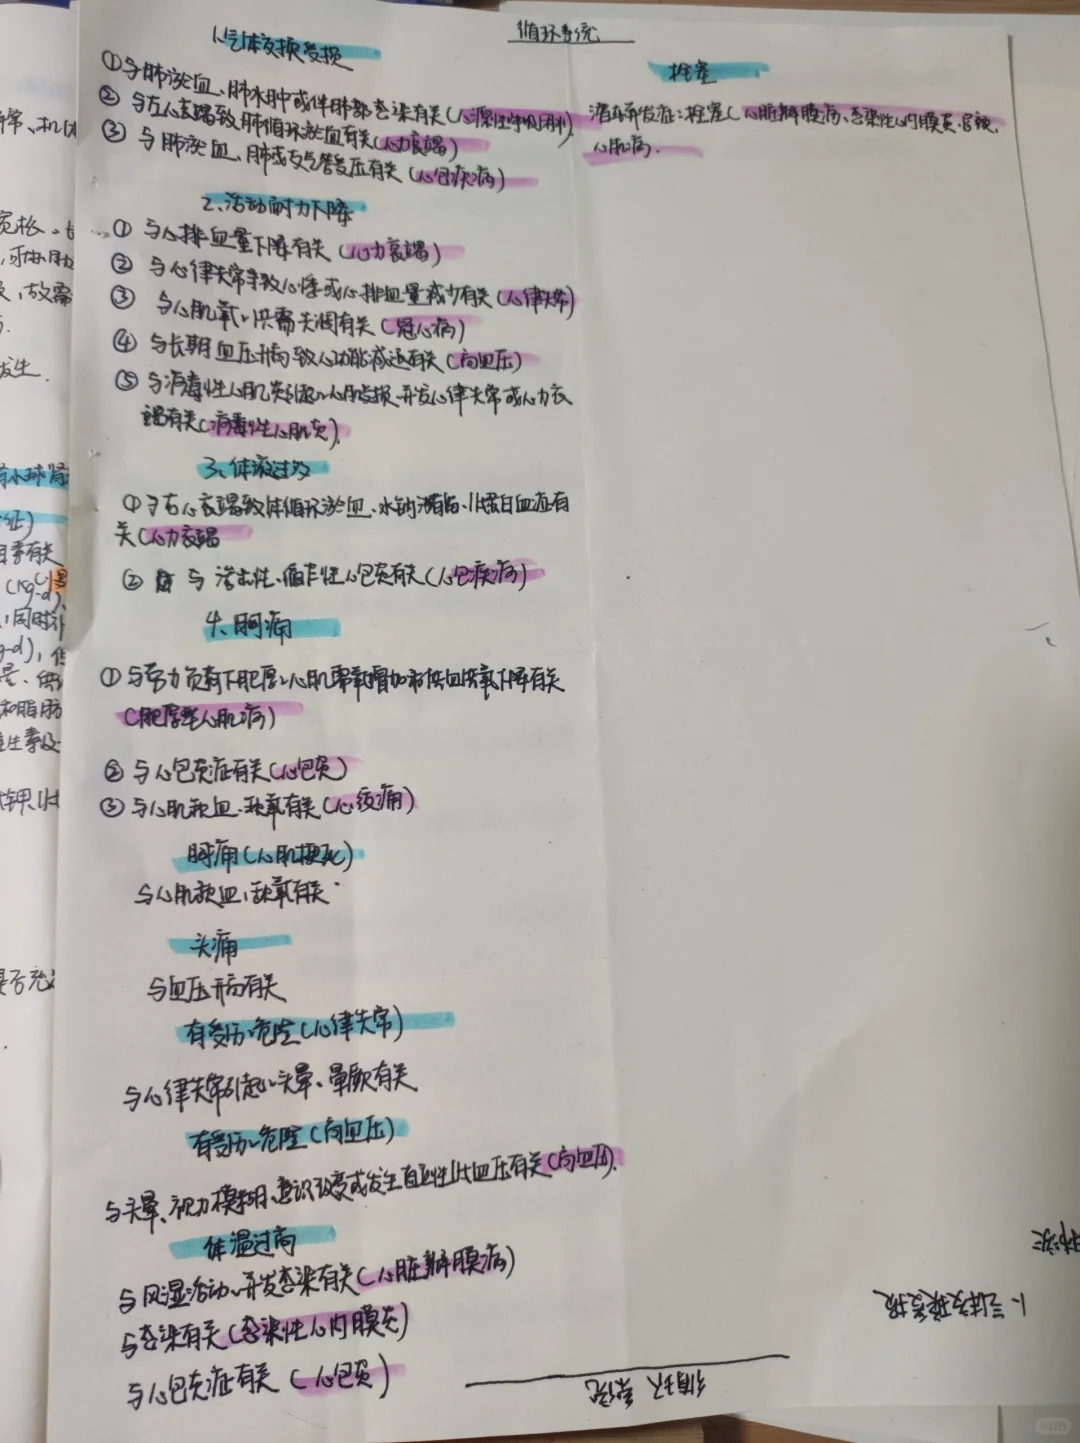 循环系统
1.气体交换受损
①与肺淤血、肺水肿或伴肺部感染有关(心源性呼吸困难)
②与左心衰竭致肺循环淤血有关(心力衰竭)
③与肺淤血、肺或支气管受压有关(心包疾病)
2、活动耐力下降
①与心排血量下降有关(心力衰竭)
②与心律失常导致心悸或心排血量减少有关(心律失常)
③与心肌氧、供需失调有关(冠心病)
④与长期血压升高致心功能减退有关(高血压)
⑤与病毒性心肌炎引起心肌受损、并发心律失常或心力衰
竭有关(病毒性心肌炎).
3、体液过多
①与右心衰竭致体循环淤血、水钠潴留、低蛋白血症有
关(心力衰竭
②与渗出性、缩窄性心包炎有关(心包疾病)
4、胸痛
①与劳力负荷下肥厚心肌需氧增加和供血供氧下降有关
(肥厚型心肌病)
②与心包炎症有关(心包炎)
③与心肌缺血、缺氧有关(心绞痛)
胸痛(心肌梗死)
与心肌缺血、缺氧有关.
头痛
与血压升高有关
有受伤危险(心律失常)
与心律失常引起头晕、晕厥有关
有受伤危险(高血压)
与头晕、视力模糊、意识改变或发生直立性低血压有关(高血压).
体温过高
与风湿活动、并发感染有关(心脏瓣膜病)
与感染有关(感染性心内膜炎)
与心包炎症有关(心包炎)
栓塞
潜在并发症:栓塞(心脏瓣膜病、感染性心内膜炎、房颤、
心肌病.
循环系统
1、气体交换受损
肺淤
常、机体
宽松、
发生.
有关
(kg·d)
,同时补
g·d),
和脂肪
低钾
是否充足
小红书